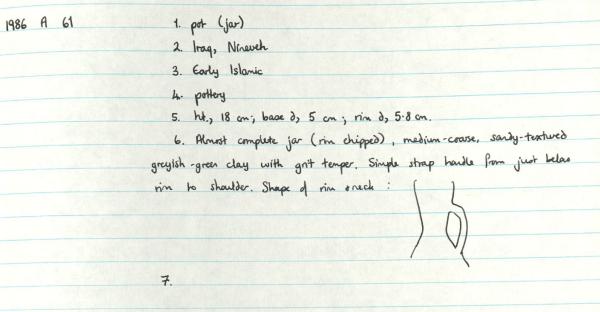 1986 A 61 1. pot (jar)
2. Iraq, Nineveh
3. Early Islamic
4. pottery
5. ht., 18 cm; base d, 5 cm; rim d, 5.8 cm.
6. Almost complete jar (rim chipped), medium-coarse, sandy-textured
greyish-green clay with grit temper. Simple strap handle from just below
rim to shoulder. Shape of rim & neck :
7.